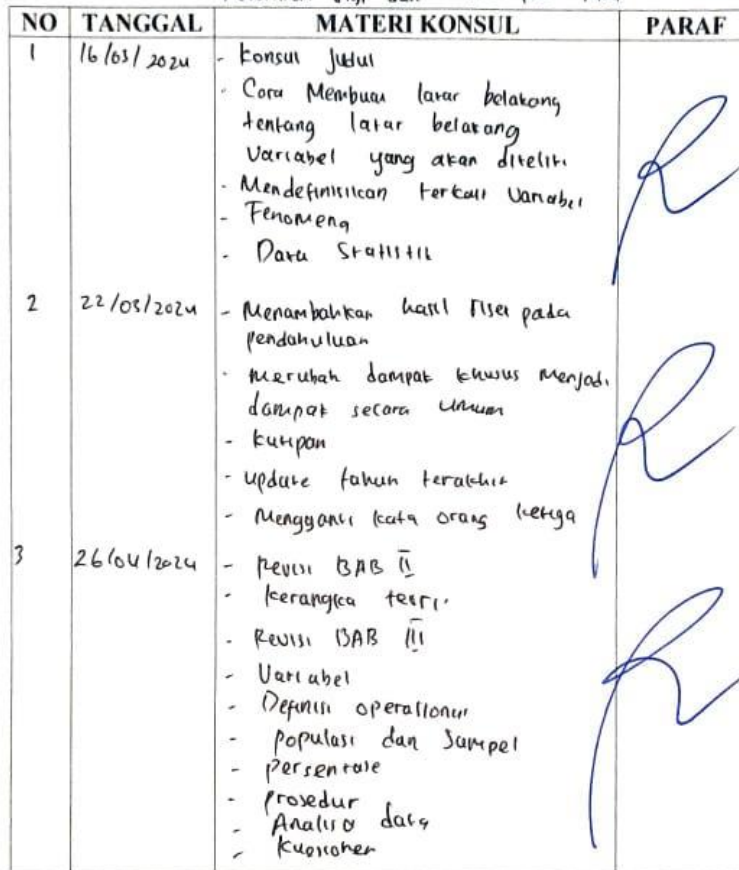 NO TANGGAL MATERI KONSUL PARAF
1 16/03/2024 - Konsul Judul
- Cara Membuat latar belakang
tentang latar belakang
Variabel yang akan diteliti
- Mendefinisikan terkait Variabel
- Fenomena
- Data Statistik
2 22/03/2024 - Menambahkan hasil riset pada
pendahuluan
- Merubah dampak khusus Menjadi
dampak secara Umum
- kutipan
- update tahun terakhir
- Mengganti kata orang ketiga
3 26/04/2024 - Revisi BAB II
- kerangka teori
- Revisi BAB III
- Variabel
- Definisi operasional
- populasi dan Sampel
- persentase
- prosedur
- Analisa data
- Kuesioner